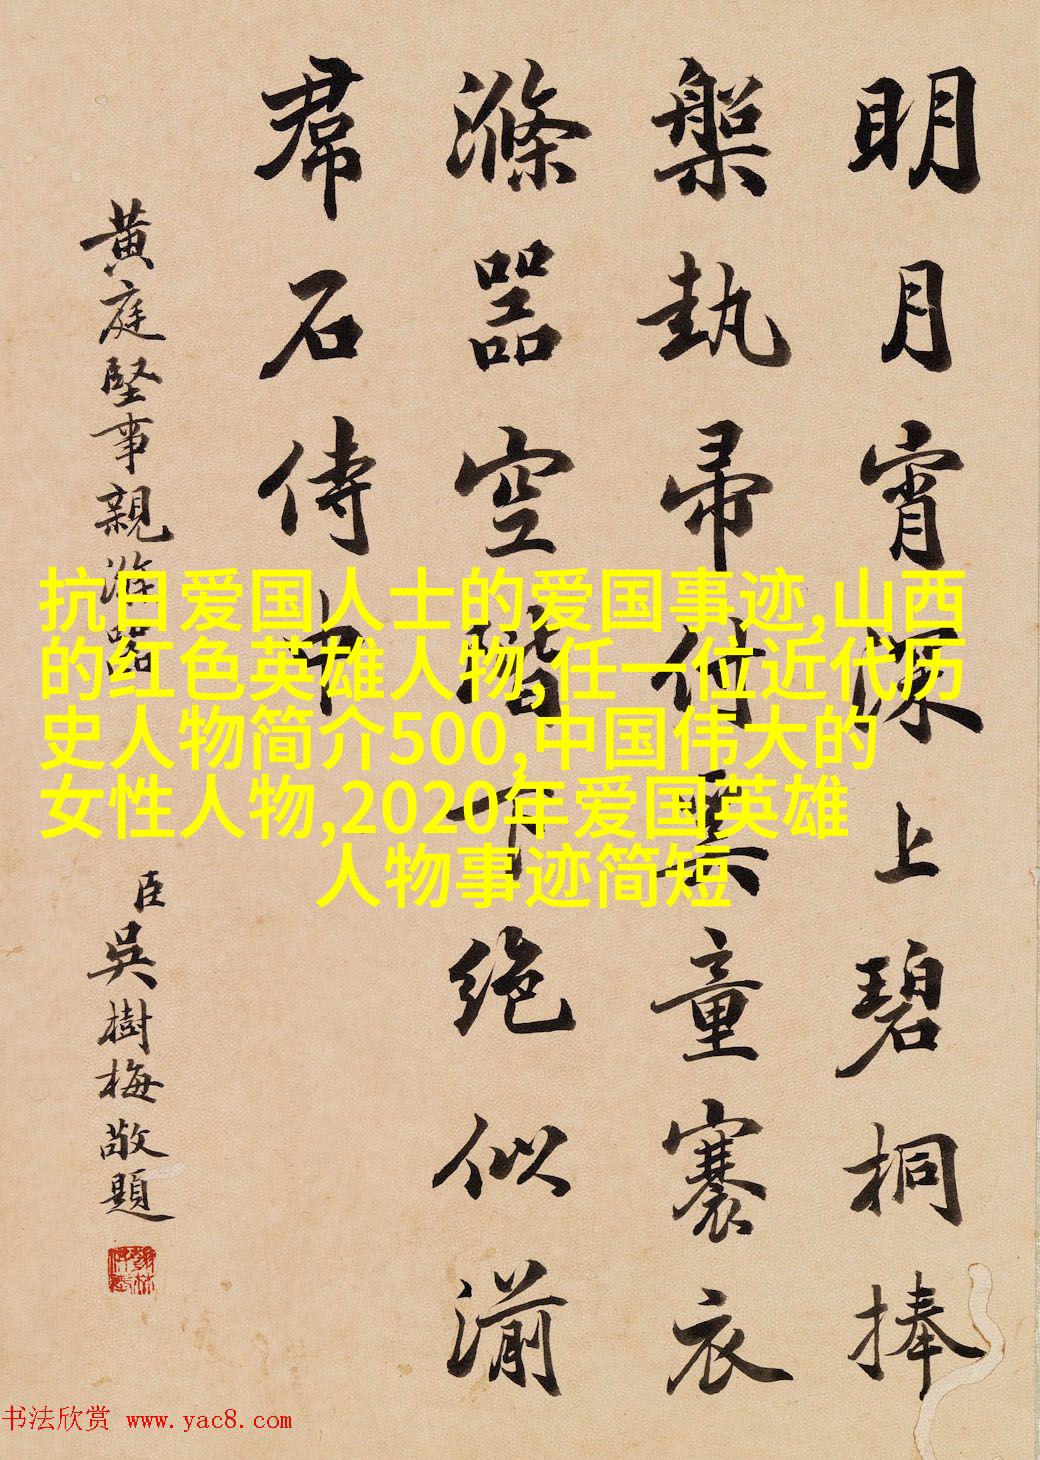 明月宵深上碧桐捧
槃執帚付奚童褰衣
滌器空階下絶似湔
帬石侍中
黄庭堅事親滌器
臣吳樹梅敬題
抗日爱国人士的爱国事迹,山西
的红色英雄人物,任一位近代历
史人物简介500,中国伟大的
女性人物,2020年爱国英雄
人物事迹简短
书法欣赏 www.yac8.com